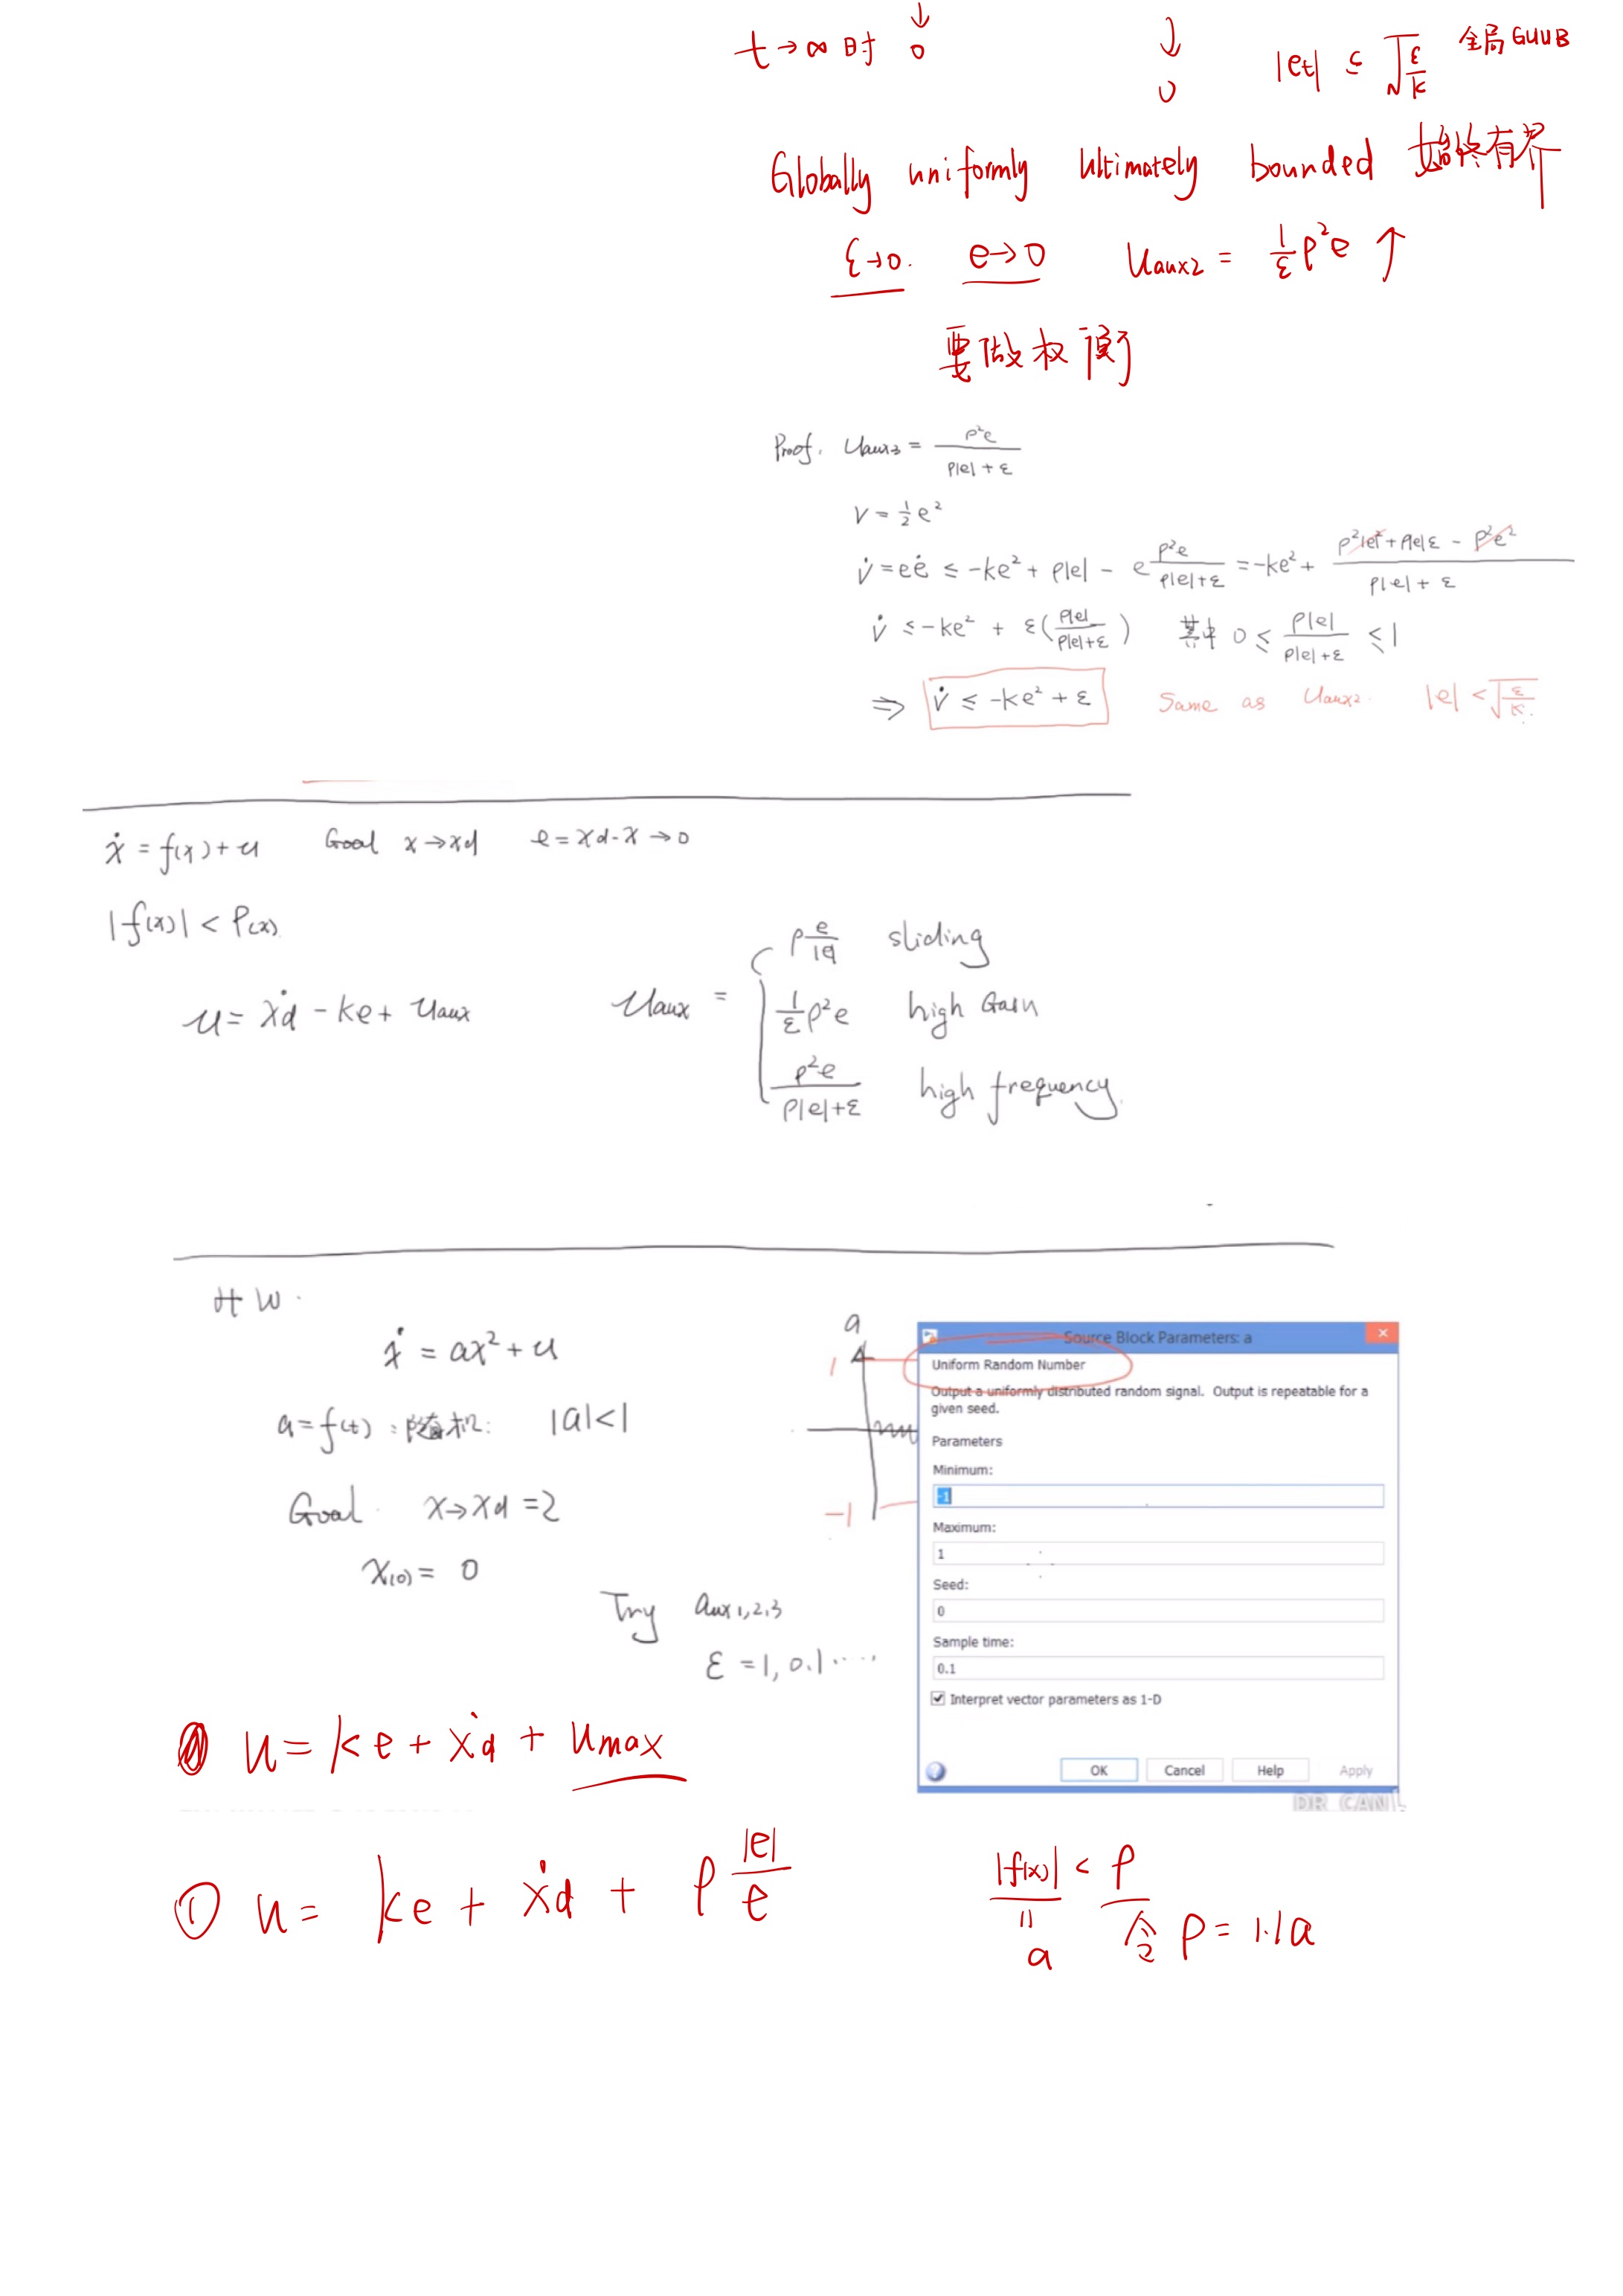 t→∞时 ↓ 0 ↓ 0 |et| ≤ √(ε/k) 全局GUUB
Globally uniformly ultimately bounded 始终有界
ε→0. e→0 Uaux2 = 1/ε ρ²e ↑
要做权衡
Proof. Uaux3 = ρ²e / (ρ|e| + ε)
V = 1/2 e²
V̇ = eė ≤ -ke² + ρ|e| - e ρ²e/(ρ|e|+ε) = -ke² + (ρ²|e|² + ρ|e|ε - ρ²e²)/(ρ|e| + ε)
V̇ ≤ -ke² + ε(ρ|e|/(ρ|e|+ε)) 其中 0 ≤ ρ|e|/(ρ|e|+ε) ≤ 1
⇒ V̇ ≤ -ke² + ε Same as Uaux2. |e| < √(ε/k).
ẋ = f(x) + u Goal x→xd e = xd-x →0
|f(x)| < ρ(x)
u = ẋd - ke + Uaux
Uaux = { ρ e/|e| sliding
1/ε ρ²e high Gain
ρ²e/(ρ|e|+ε) high frequency.
HW.
ẋ = ax² + u
a = f(t) : 随机: |a|<1
Goal. x→xd = 2
x(0) = 0
Try aux1,2,3
ε = 1, 0.1 .....
a
1
-1
Source Block Parameters: a
Uniform Random Number
Output a uniformly distributed random signal. Output is repeatable for a
given seed.
Parameters
Minimum:
-1
Maximum:
1
Seed:
0
Sample time:
0.1
Interpret vector parameters as 1-D
OK Cancel Help Apply
DR_CAN
u = ke + ẋd + umax
① u = ke + ẋd + ρ |e|/e
|f(x)| < ρ
= a 令 ρ = 1.1a